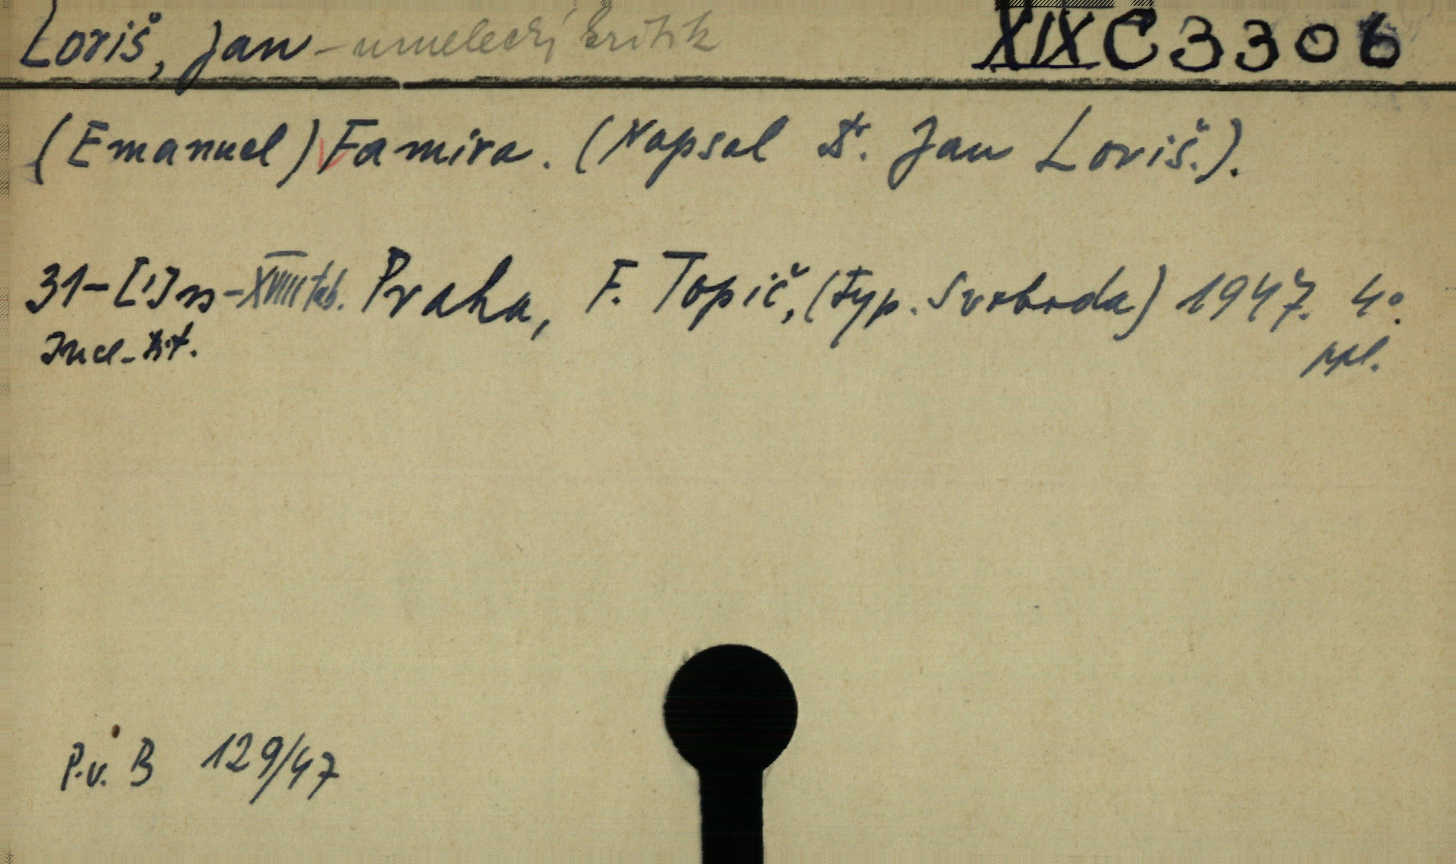 Loriš, Jan - umělecký kritik XIX C 3306
(Emanuel) Famira. (Napsal Dr. Jan Loriš.).
31-[1] s - XVIII tab. Praha, F. Topič, (Typ. Svoboda) 1947. 4°.
ppl.
P.v. B 129/47